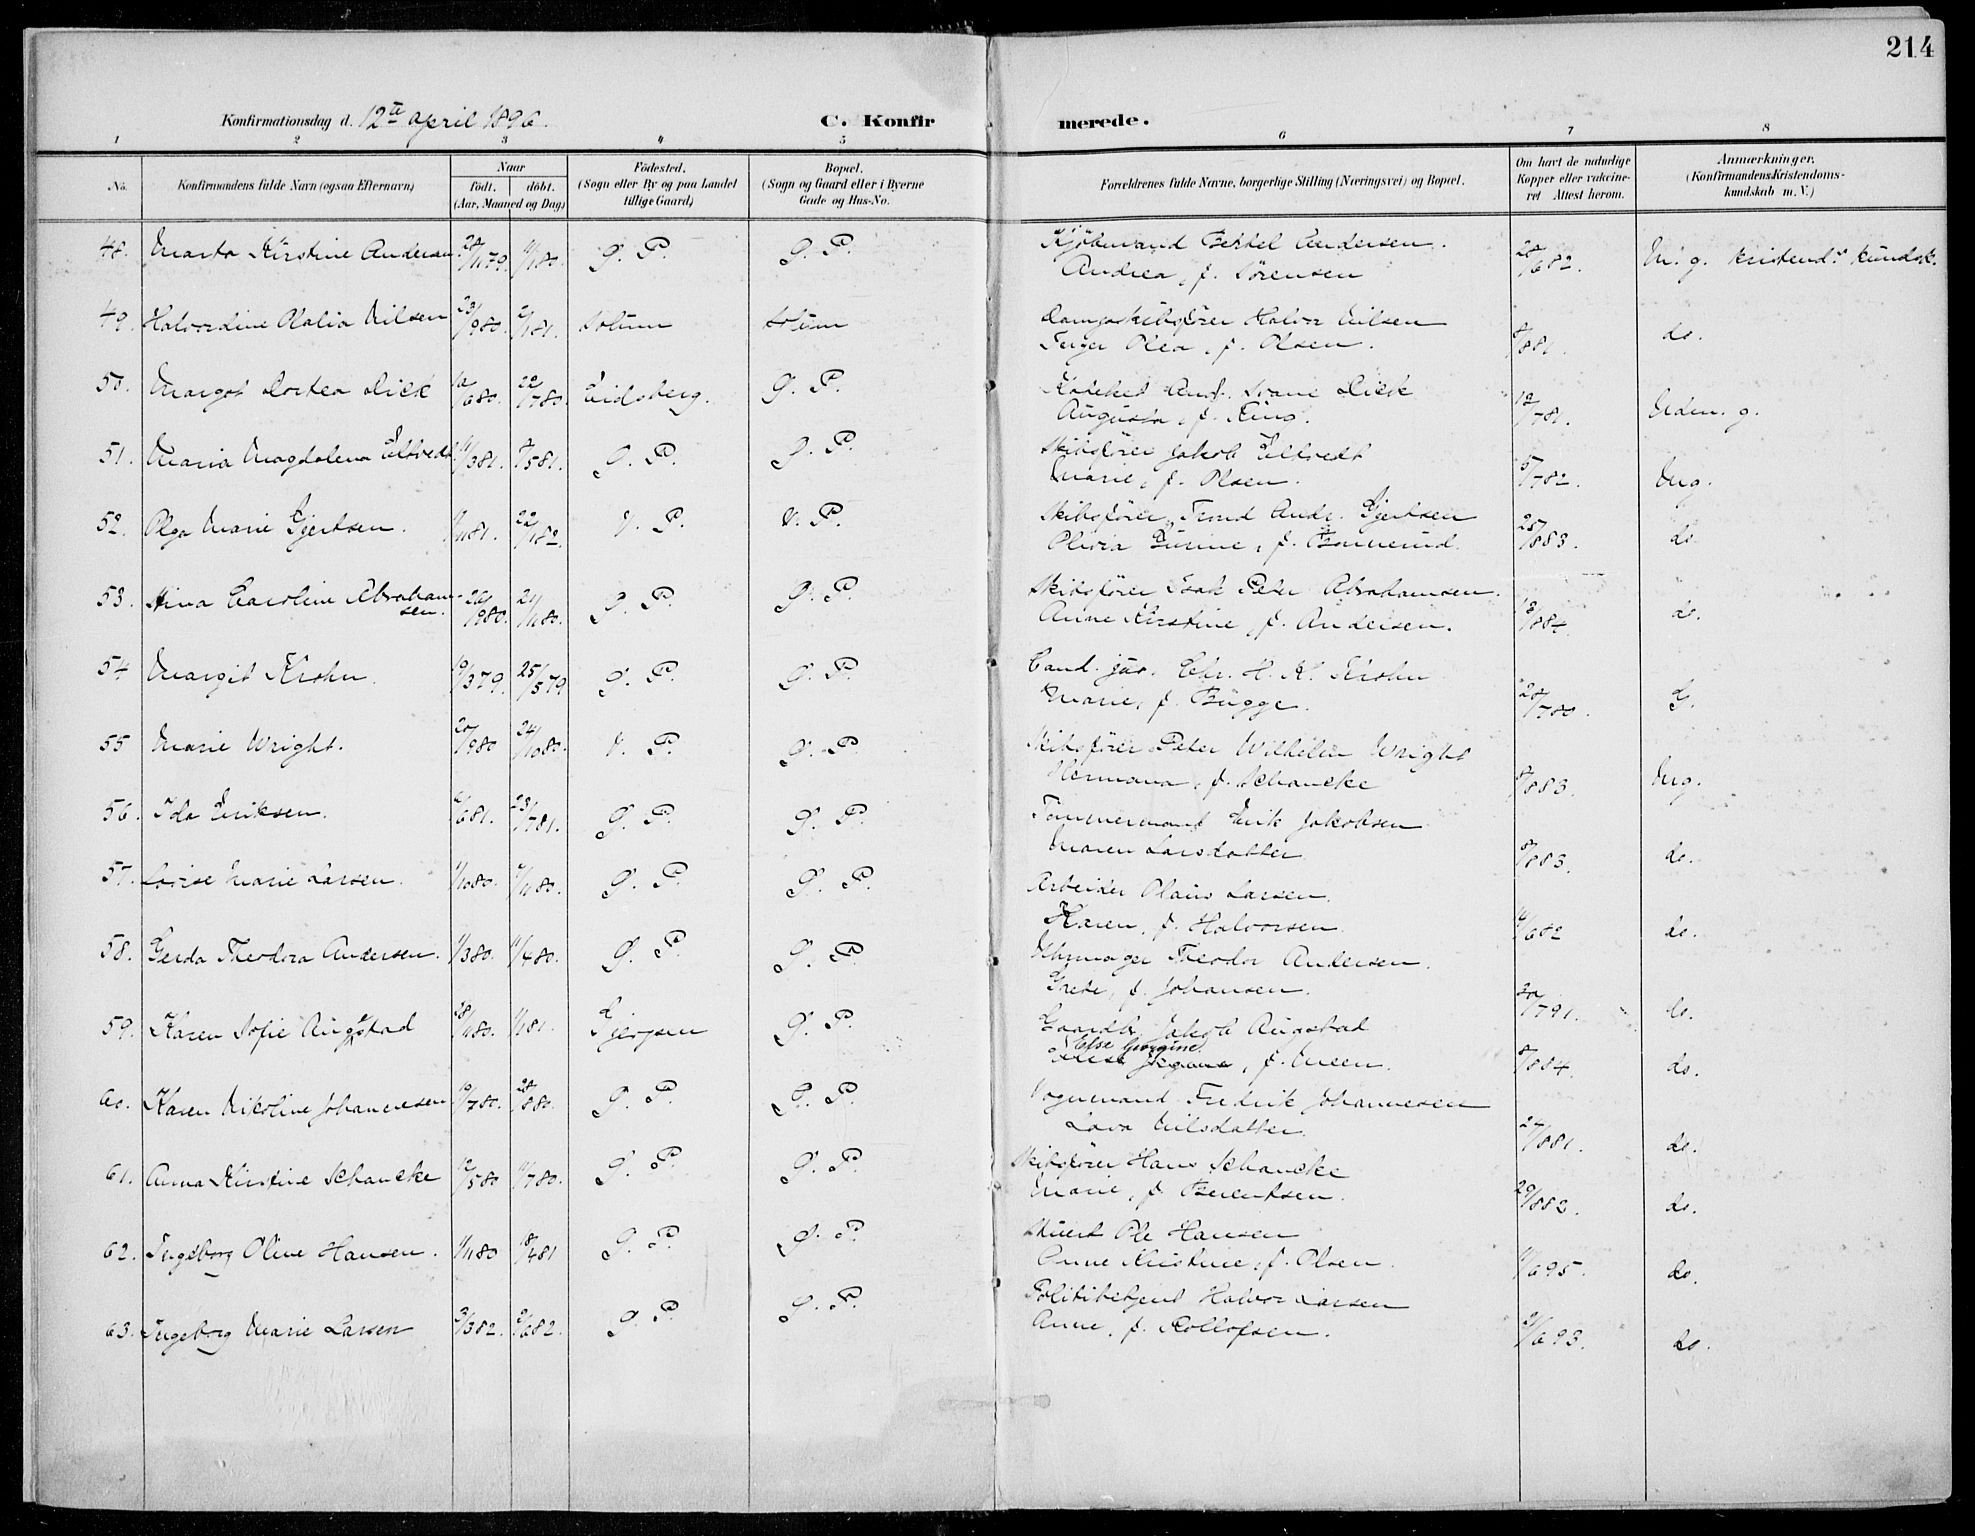 214
Konfirmationsdag d. 12te april 1896.
C. Konfirmerede.
1 2 3 4 5 6 7 8
No.
Konfirmandens fulde Navn (ogsaa Efternavn)
Naar
födt. döbt.
(Aar, Maaned og Dag)
Födested.
(Sogn eller By og paa Landet
tillige Gaard)
Bopæl.
(Sogn og Gaard eller i Byerne
Gade og Hus-No.
Forældrenes fulde Navne, borgerlige Stilling (Næringsvei) og Bopæl.
Om havt de naturlige
Kopper eller vakcine-
ret Attest herom.
Anmærkninger.
(Konfirmandens Kristendoms-
kundskab m. V.)
48. Marta Kirstine Andersen 28/1179. P. P. Kjöbmand Bertel Andersen. 28/682. M. g. kristend.s kundsk.
Andrea, f. Sörensen
49. Halvordine Olalia Nilsen 23/980. 2/181. Solum Solum Dampskibsförer Halvor Nilsen
Inger Olea, f. Olsen. 8/881. do.
50. Margot Dortea Dick 10/680. 22/780. Eidsberg. P. Dick
Augusta, f. 12/781. Uden. g.
51. Maria Magdalena Eltvedt 11/381. 7/581. P. P. Skibsförer Jakob Eltvedt
Marie, f. Olsen. 5/782. Mg.
52. Olga Marie Gjertsen. 22/182. P. P. Skibsförer Trond Andr. Gjertsen
Olivia f. 25/883. do.
53. Stina Caroline Abraham-
sen. 26/980. 21/1180. P. P. Skibsförer Isak Peter Abrahamsen.
Anne Kirstine, f. Andersen. 18/884. do.
54 Margit Krohn. 10/379. 25/579 P. P. Cand. jur. Chr. H. K. Krohn
Marie, f. Bugge. 20/780. G.
55 Marie Wright. 20/980 24/1080. P. P. Skibsförer Peter Wilhelm Wright
Hermana, f. Schancke 8/883. Mg.
56. Ida Eriksen. 6/681. 23/781. P. P. Tömmermand Erik Jakobsen
Maren Larsdatter 8/883. do.
57. Lovise Marie Larsen. 1/1080. 7/1180. P. P. Arbeider Olaus Larsen.
Karen, f. Halvorsen. do.
58. Gerda Theodora Andersen. 1/380. 11/480. P. P. Uhrmager Theodor Andersen.
Grete, f. Johansen. 20/791. do.
59. Karen Sofie Augstad 28/1180. 1/181. Gjerpen P. Gaardbr. Jakob Augstad
Else Gurgine.
f. Meen. 8/884. do.
60. Karen Nikoline Johannesen 10/780. 28/880. P. P. Vognmand Fredrik Johannesen
Lava Nilsdatter. 27/881. do.
61. Anna Kirstine Schancke 12/580 11/780. P. P. Skibsförer Hans Schancke
Marie, f. Berentsen. 29/882. do.
62. Ingeborg Oline Hansen. 1/1180 18/481 P. P. Ole Hansen
Anne Kristine, f. Olsen. 11/695. do.
63. Ingeborg Marie Larsen 3/382. 3/682. P. P. Politibetjent Halvor Larsen
Anne, f. Rollofsen. 2/693. do.